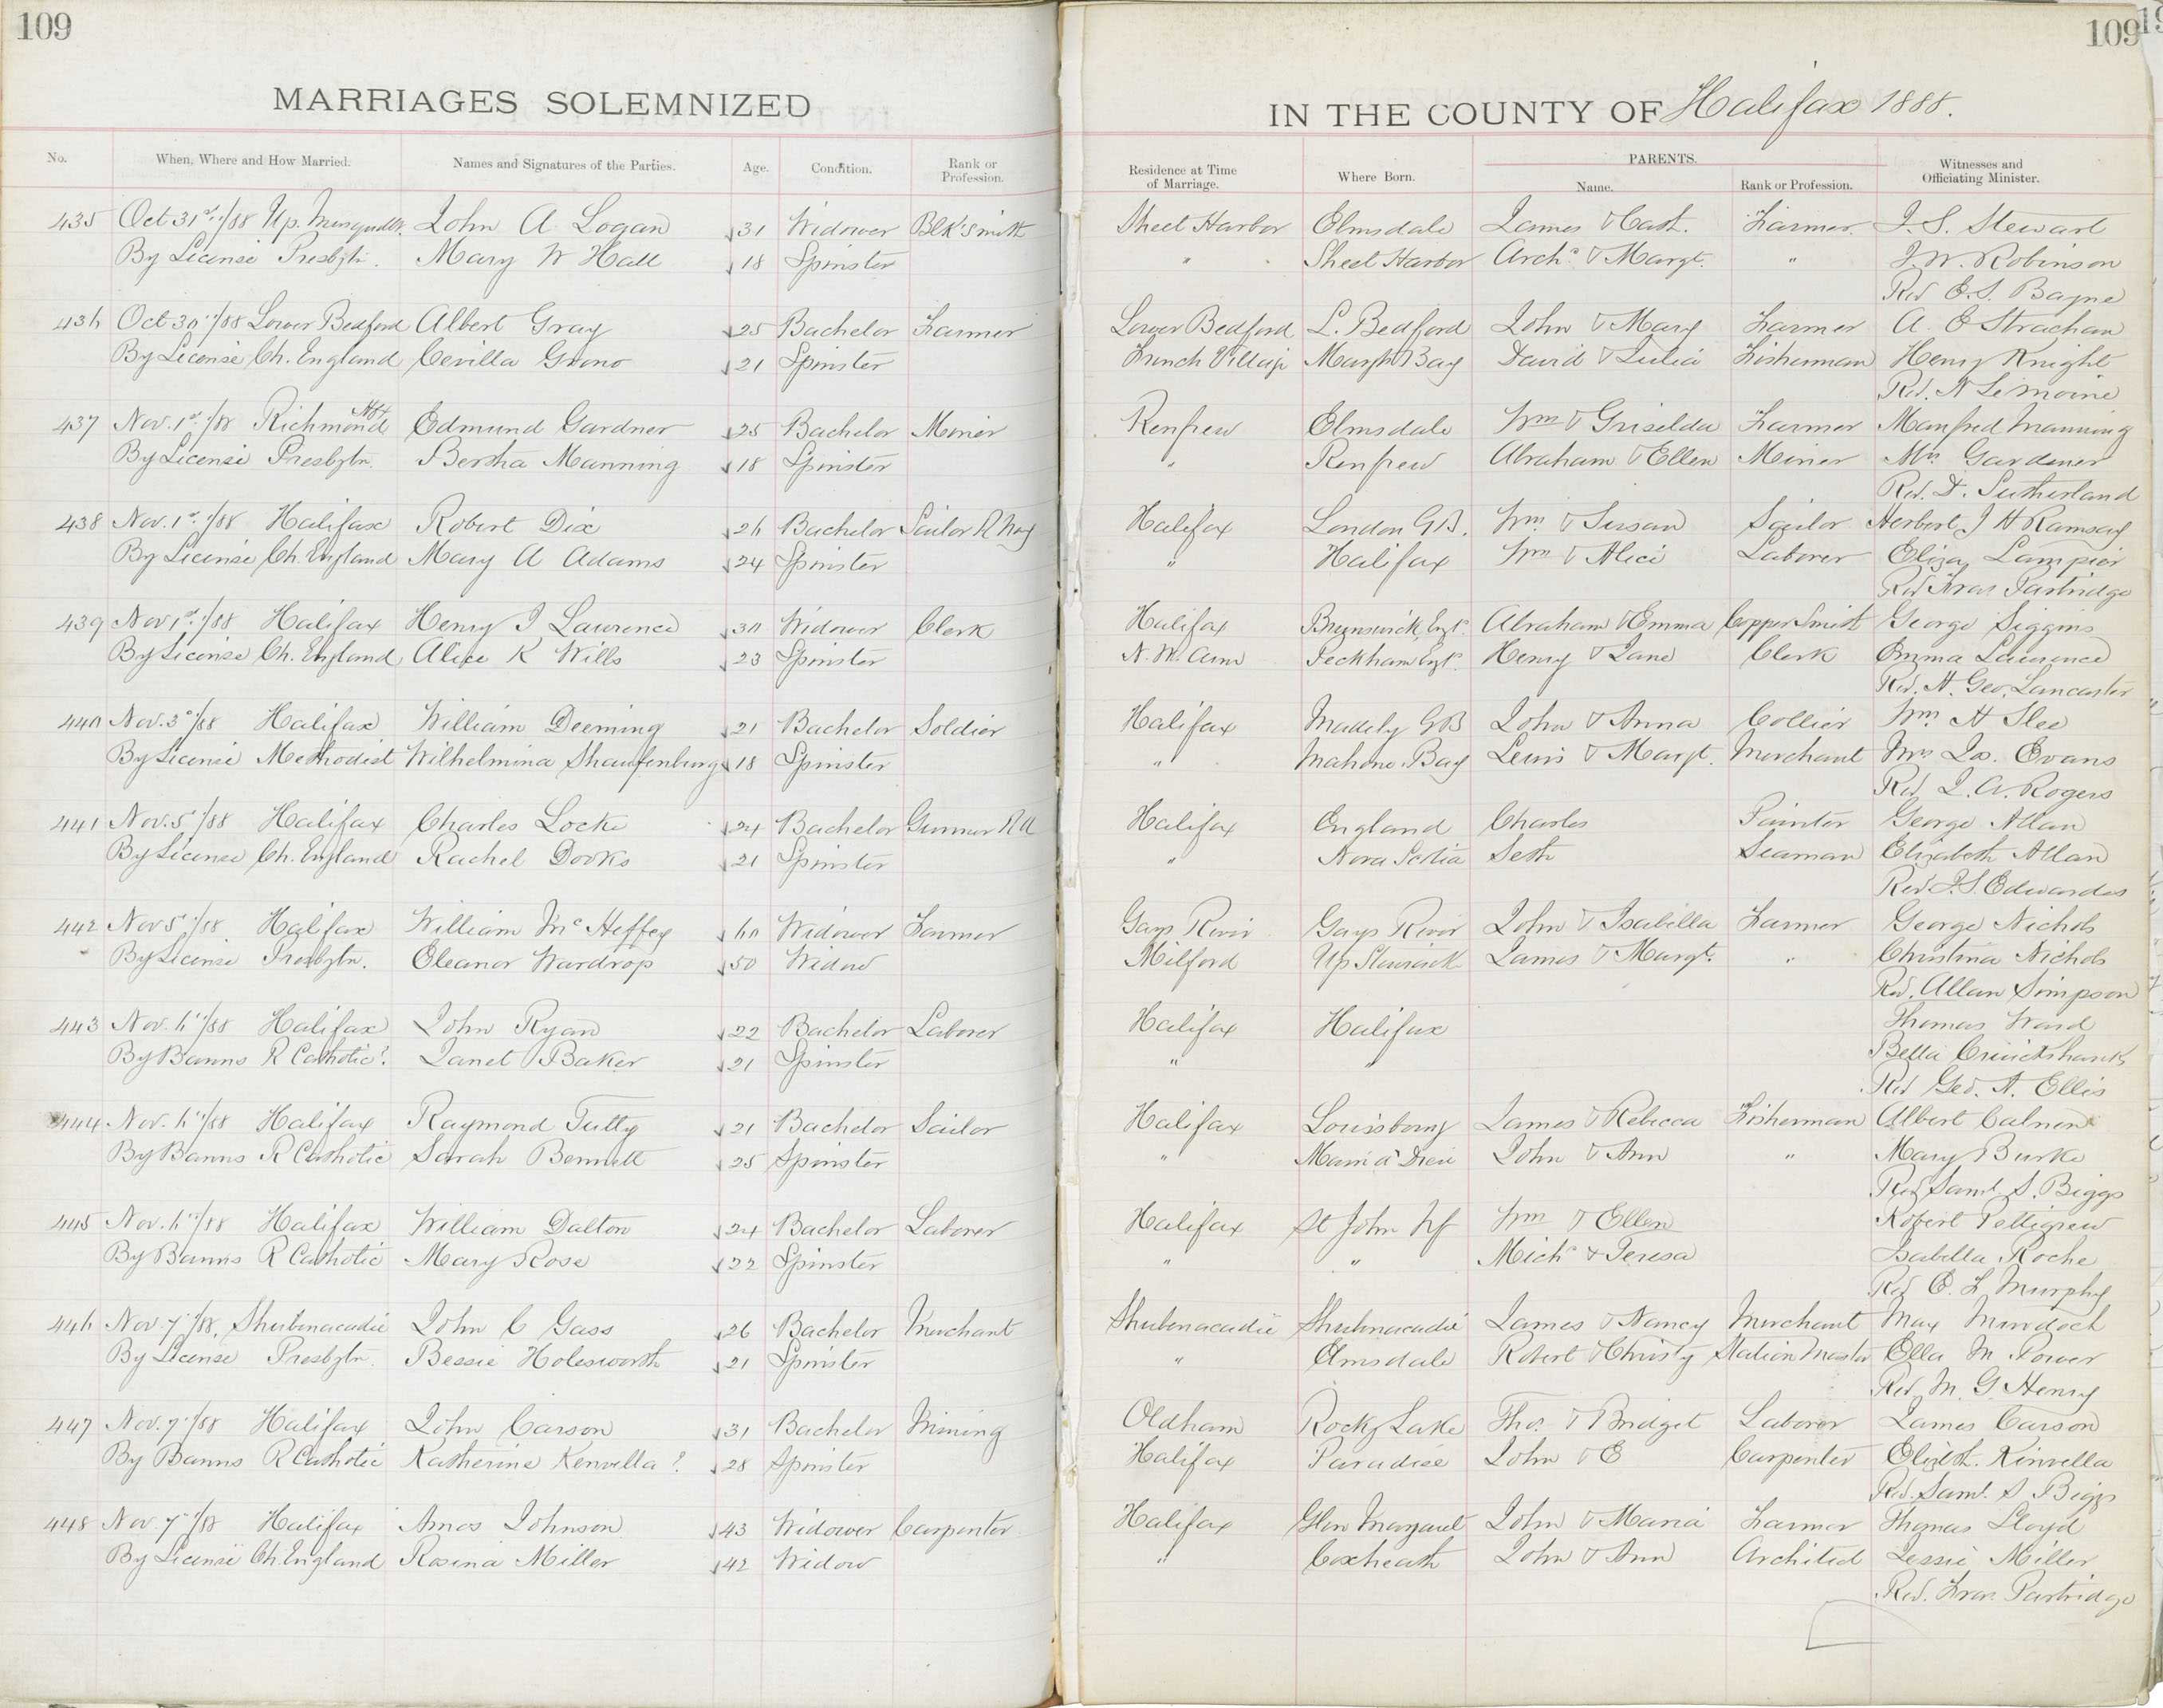 109
109
MARRIAGES SOLEMNIZED
IN THE COUNTY OF Halifax 1888.
No. When, Where and How Married. Names and Signatures of the Parties. Age. Condition. Rank or Profession. Residence at Time of Marriage. Where Born. PARENTS. Name. Rank or Profession. Witnesses and Officiating Minister.
435 Oct 31st /88 Up. John A Logan 31 Widower Blk'smith Sheet Harbor Elmsdale James & Cath. Farmer J. S. Stewart
By License Presbytn. Mary W Hall 18 Spinster " Sheet Harbor Archd & Margt. " J. W. Robinson
Rev E. S. Bayne
436 Oct 30 /88 Lower Bedford Albert Gray 25 Bachelor Farmer Lower Bedford L. Bedford John & Mary Farmer A. E Strachan
By License Ch. England Cevilla Grono 21 Spinster French Village Margts Bay David & Julia Fisherman Henry Knight
Rev. N LeMoine
437 Nov. 1st /88 Richmond Edmund Gardner 25 Bachelor Miner Renfrew Elmsdale Wm & Griselda Farmer Manfred Manning
By License Presbytn. Bertha Manning 18 Spinster " Renfrew Abraham & Ellen Miner Mrs Gardner
Rev. D. Sutherland
438 Nov. 1st /88 Halifax Robert Dix 26 Bachelor Sailor R Navy Halifax London G B. Wm & Susan Sailor Herbert J H Ramsay
By License Ch. England Mary A Adams 24 Spinster " Halifax Wm & Alice Laborer Eliza Lampier
Rev Fras Partridge
439 Nov 1st /88 Halifax Henry J Lawrence 30 Widower Clerk Halifax Brunswick, Engd. Abraham & Emma CopperSmith George Siggins
By License Ch. England Alice K Wills 23 Spinster N. W. Arm Peckham Engd. Henry & Jane Clerk Emma Lawrence
Rev. H. Geo. Lancaster
440 Nov. 3d /88 Halifax William Deeming 21 Bachelor Soldier Halifax Madely G B John & Anna Collier Wm H Slee
By License Methodist Wilhelmina Shaufenburg 18 Spinster " Mahone Bay Lewis & Margt. Merchant Mrs Jas. Evans
Rev. J. A. Rogers
441 Nov. 5 /88 Halifax Charles Locke 24 Bachelor Gunner R A Halifax England Charles Painter George Allan
By License Ch. England Rachel Dooks 21 Spinster " Nova Scotia Seth Seaman Elizabeth Allan
Rev. J. S. Edwardes
442 Nov 5 /88 Halifax William McHeffey 60 Widower Farmer Gays River Gays River John & Isabella Farmer George Nichols
By License Presbytn. Eleanor Wardrop 50 Widow Milford Up Stewiack James & Margt. " Christina Nichols
Rev. Allan Simpson
443 Nov. 6 /88 Halifax John Ryan 22 Bachelor Laborer Halifax Halifax Thomas Ward
By Banns R Catholic? Janet Baker 21 Spinster " " Bella Cruickshank
Rev Geo. A. Ellis
444 Nov. 6 /88 Halifax Raymond Tutty 21 Bachelor Sailor Halifax Louisbourg James & Rebecca Fisherman Albert Calnen
By Banns R Catholic Sarah Bennett 25 Spinster " Main a Dieu John & Ann " Mary Burke
Rev Saml. S. Biggs
445 Nov. 6 /88 Halifax William Dalton 24 Bachelor Laborer Halifax St John Nf Wm & Ellen Robert Pettigrew
By Banns R Catholic Mary Rose 22 Spinster " " Michl & Teresa Isabella Roche
Rev E. F Murphy
446 Nov. 7 /88, Shubenacadie John C Gass 26 Bachelor Merchant Shubenacadie Shubenacadie James & Nancy Merchant May Murdoch
By License Presbytn. Bessie Holesworth 21 Spinster " Elmsdale Robert & Christy Station Master Ella M. Power
Rev. M. G. Henry
447 Nov. 7 /88 Halifax John Carson 31 Bachelor Mining Oldham Rocky Lake Thos. & Bridget Laborer James Carson
By Banns R Catholic Katherine Kenvella? 28 Spinster Halifax Paradise John & E Carpenter Elizbth. Kinvella
Rev. Saml. S Biggs
448 Nov. 7 /88 Halifax Amos Johnson 43 Widower Carpenter Halifax Glen Margaret John & Maria Farmer Thomas Lloyd
By License Ch. England Rosina Miller 42 Widow " Coxheath John & Ann Architect Jessie Miller
Rev. Fras. Partridge